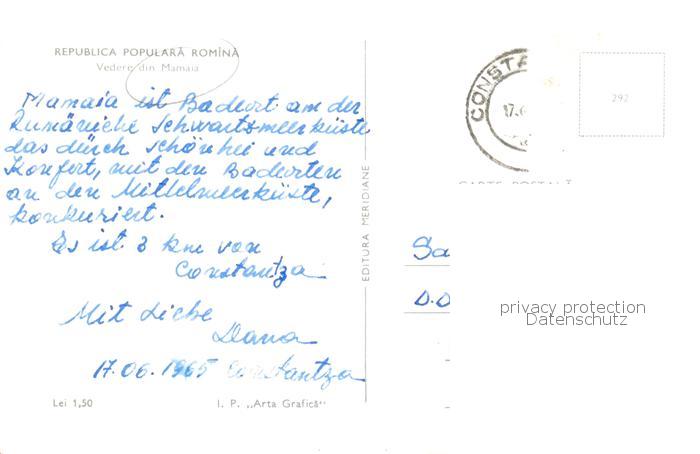 REPUBLICA POPULARĂ ROMÎNĂ
Vedere din Mamaia
Mamaia ist Badeort am der
Rumäniche Schwartsmeerküste
das dürch schönhei und
Komfort, mit den Badeorten
an den Mittelmeerküste,
konkuriert.
Es ist 3 km von
Constantza
Mit Liebe
Dana
17.06.1965 Constantza
Lei 1,50
I. P. „Arta Grafică“
EDITURA MERIDIANE
CONSTA
17.6
292
CARTE POSTALĂ
Sa
D.D
privacy protection
Datenschutz